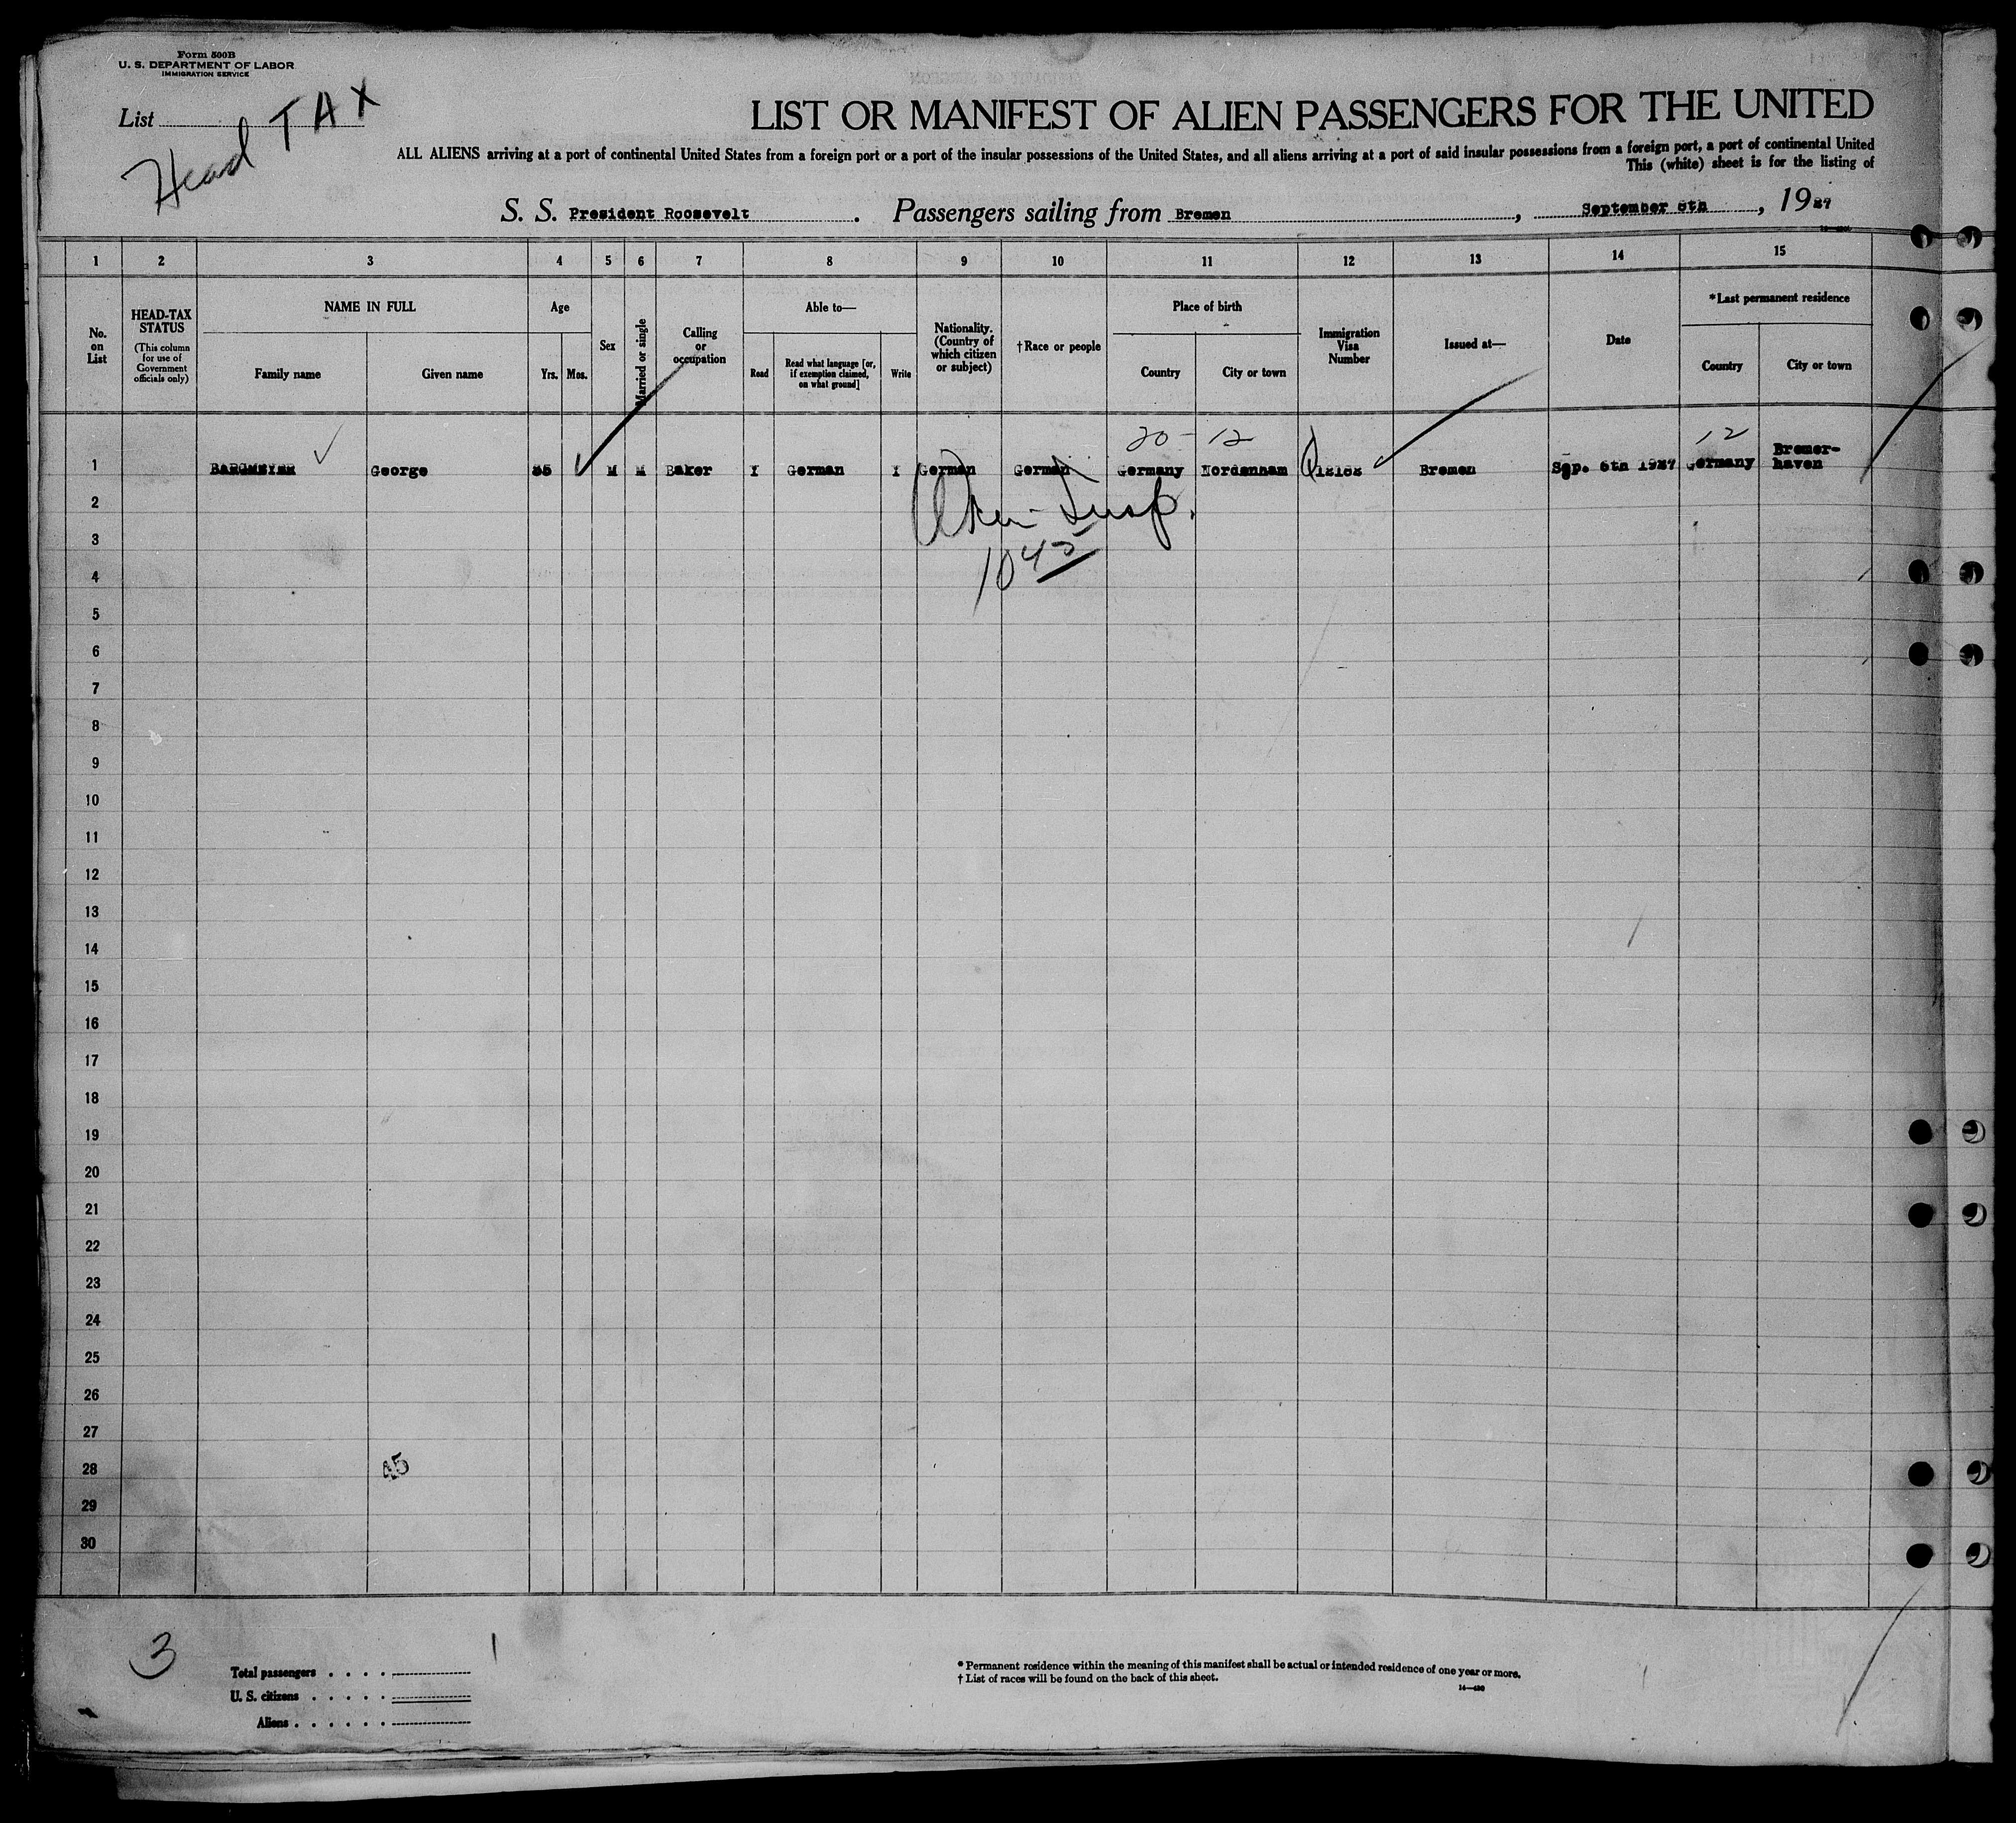 Form 500B
U. S. DEPARTMENT OF LABOR
IMMIGRATION SERVICE
List
Head TAX
LIST OR MANIFEST OF ALIEN PASSENGERS FOR THE UNITED
ALL ALIENS arriving at a port of continental United States from a foreign port or a port of the insular possessions of the United States, and all aliens arriving at a port of said insular possessions from a foreign port, a port of continental United
This (white) sheet is for the listing of
S. S. President Roosevelt. Passengers sailing from Bremen, September 8th, 1927
1 2 3 4 5 6 7 8 9 10 11 12 13 14 15
No. on List
HEAD-TAX STATUS
(This column for use of Government officials only)
NAME IN FULL
Family name
Given name
Age
Yrs. Mos.
Sex
Married or single
Calling or occupation
Able to—
Read
Read what language [or, if exemption claimed, on what ground]
Write
Nationality. (Country of which citizen or subject)
†Race or people
Place of birth
Country
City or town
Immigration Visa Number
Issued at—
Date
*Last permanent residence
Country
City or town
20 - 12
12
1 George M M Baker Y German Y German German Germany Nordenham Bremen Sep. 6th 1927 Germany Bremer-haven
2
3
1045
4
5
6
7
8
9
10
11
12
13
14
15
16
17
18
19
20
21
22
23
24
25
26
27
28
45
29
30
3
1
Total passengers
U. S. citizens
Aliens
* Permanent residence within the meaning of this manifest shall be actual or intended residence of one year or more.
† List of races will be found on the back of this sheet.